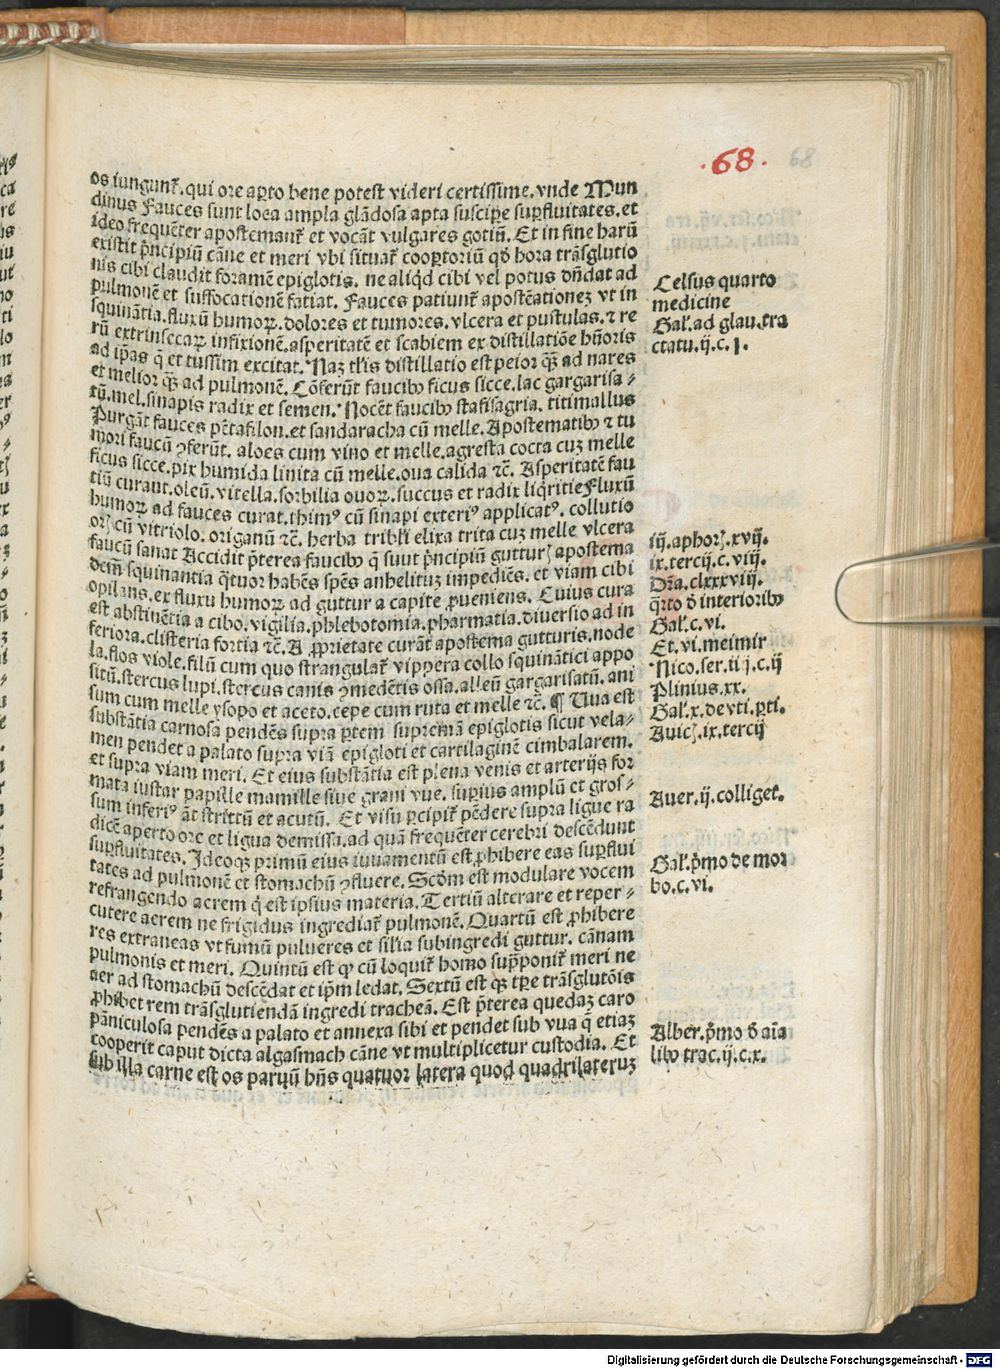 .68.
os iungunt᷑. qui ore apto bene potest videri certissime. vnde Mun
dinus Fauces sunt loca ampla glādosa apta suscipe supfluitates. et
ideo frequēter apostemant᷑ et vocāt vulgares gotiū. Et in fine harū
existit p̄ncipiū cāne et meri vbi situat᷑ cooptoriū qđ hora trāsglutio
nis cibi claudit foramē epiglotis. ne aliqđ cibi vel potus dn̄dat ad
pulmonē et suffocationē fatiat. Fauces patiunt᷑ apostēationeʒ vt in
squināṫia. fluxū humoꝝ. dolores et tumores. vlcera et pustulas. ⁊ re
rū extrinsecaꝝ infixionē. asperitatē et scabiem ex distillatiōe hn̄oris
ad ip̄as q̄ et tussim excitat. Naʒ tl̄is distillatio est peior qꝫ̄ ad nares
et melior qꝫ̄ ad pulmonē. Cōferūt faucibꝰ ficus sicce. lac gargarisa⸗
tū. mel. sinapis radix et semen. Nocēt faucibꝰ stafisagria. titimallus
Purgāt fauces pētafilon. et sandaracha cū melle. Apostematibꝰ ⁊ tu
mori faucū ꝯferūt. aloes cum vino et melle. agresta cocta cuʒ melle
ficus sicce. pix humida linita cū melle. oua calida ⁊c̄. Asperitatē fau
tiū curant. oleū. vitella. sorbilia ouoꝝ. succus et radix liq̇ritie Fluxū
humoꝝ ad fauces curat. thimꝰ cū sinapi exteriꝰ applicatꝰ. collutio
orꝭ cū vitriolo. origanū ⁊c̄. herba tribl̄i elixa trita cuʒ melle vlcera
faucū sanat Accidit p̄terea faucibꝰ q̄ sunt p̄ncipiū gutturꝭ apostema
dcm̄ squinantia q̄tuor habēs sp̄es anhelituʒ impediēs. et viam cibi
opilans. ex fluxu humoꝝ ad guttur a capite ꝓueniens. Cuius cura
est abstinētia a cibo. vigilia. phlebotomia. pharmatia. diuersio ad in
feriora. clisteria fortia ⁊c̄. A ꝓprietate curāt apostema gutturis. node
la. flos viole. filū cum quo strangulat᷑ vippera collo squinātici appo
sitū. stercus lupi. stercus canis ꝯmedētis ossa. alleū gargarisatū. ani
sum cum melle ysopo et aceto. cepe cum ruta et melle ⁊c̄. ¶ Uua est
substātia carnosa pendēs supra ptem supremā epiglotis sicut vela⸗
men pendet a palato supra viā epigloti et cartilaginē cimbalarem.
et supra viam meri. Et eius substātia est plena venis et arterijs for
mata iustar papille mamille siue grani vue. supius amplū et gros⸗
sum inferiꝰ āt strittū et acutū. Et visu pcipit᷑ pēdere supra ligue ra
dicē aperto ore et ligua demissa. ad quā frequēter cerebri descēdunt
supfluitates. Ideoqꝫ primū eius iuuamentū est ꝓhibere eas supflui
tates ad pulmonē et stomachū ꝯfluere. Scđm est modulare vocem
refrangendo aerem q̇ est ipsius materia. Tertiū alterare et reper⸗
cutere aerem ne frigidus ingrediat᷑ pulmonē. Quartū est ꝓhibere
res extraneas vt fumū pulueres et silia subingredi guttur. cānam
pulmonis et meri. Quintū est ꝙ cū loquit᷑ homo supponit᷑ meri ne
aer ad stomachū descēdat et ip̄m ledat. Sextū est qꝫ tp̄e trāsglutōis
ꝓhibet rem trāsglutiendā ingredi tracheā. Est p̄terea quedaʒ caro
pāniculosa pendēs a palato et annexa sibi et pendet sub vua q̄ etiaʒ
cooperit caput dicta algasmach cāne vt multiplicetur custodia. Et
sub illa carne est os paruū hn̄s quatuor latera quod quadrilateruʒ
Celsus quarto
medicine
Gal̄. ad glau. tra
ctatu. ij. c. j.
iij. aphorꝭ. xvij.
ix. tercij. c. viij.
Dr̄a. clxxxviij.
q̄rto đ interioribꝰ
Gal̄. c. vi.
Et. vi. meimir
Nico. ser. iij. c. ij
Plinius. xx.
Gal̄. x. de vti. pti.
Auicꝭ. ix. tercij
Auer. ij. colliget.
Gal̄. p̄mo de mor
bo. c. vi.
Alber. p̄mo đ aīa
libꝰ trac. ij. c. x.
Digitalisierung gefördert durch die Deutsche Forschungsgemeinschaft - DFG